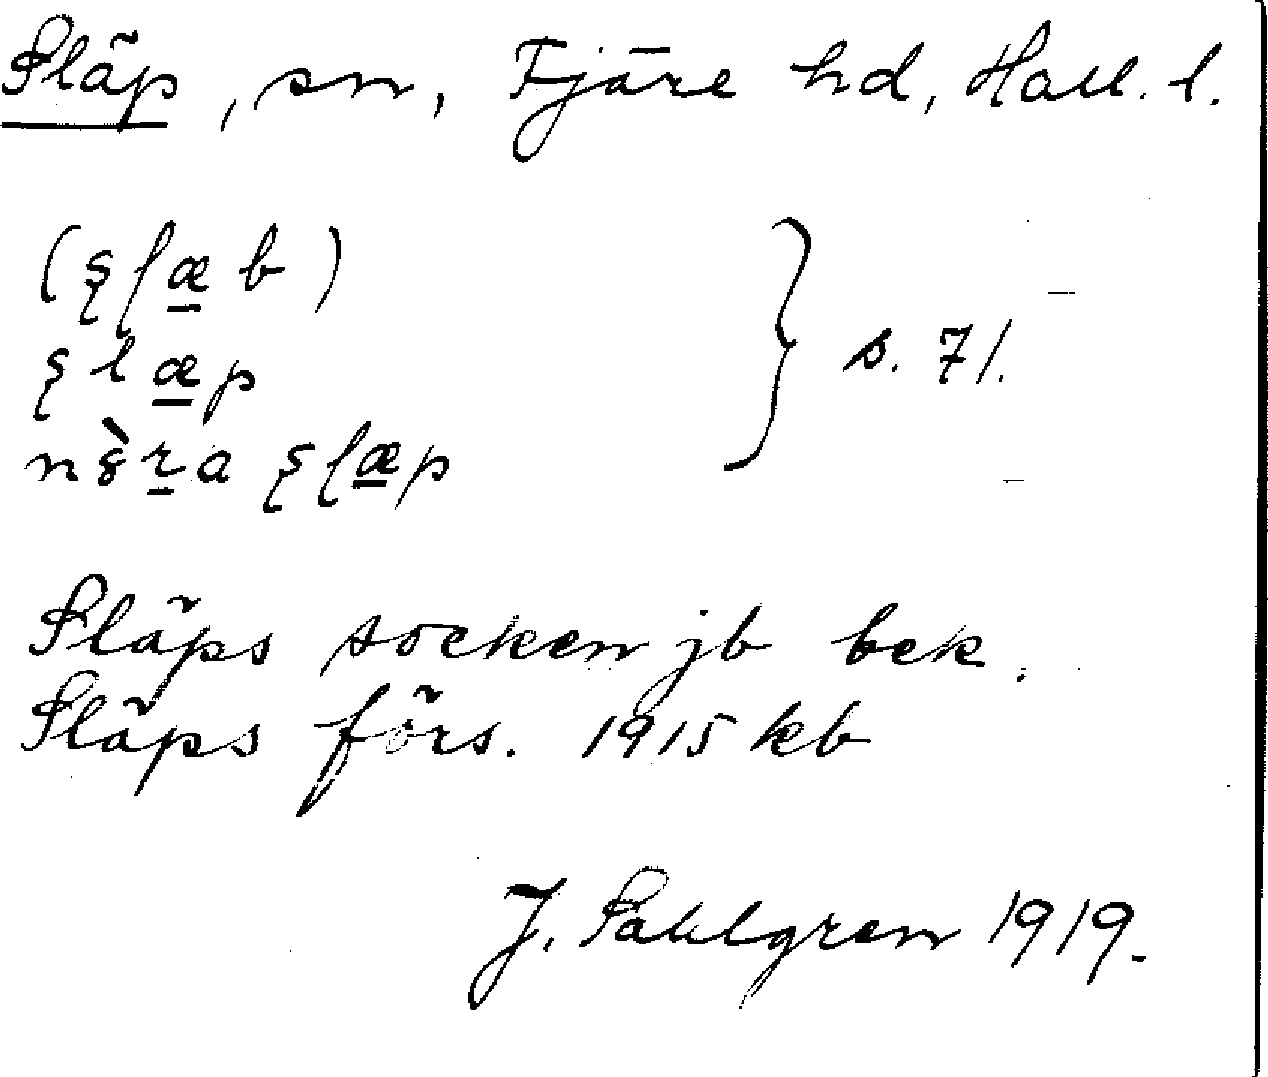 Släp, sn, Fjäre hd, Hall. l.
(slæb)
slæp
s. 71.
slæp
Släps socken jb bek.
Släps förs. 1915 kb
J. Sahlgren 1919.